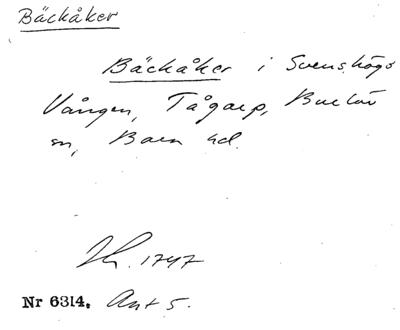 Bäckåker
Bäckåker i Svenshögs
Vången, Tågarp, Burlöv
sn, Bara hd.
1747
Nr 6314. Akt 5.